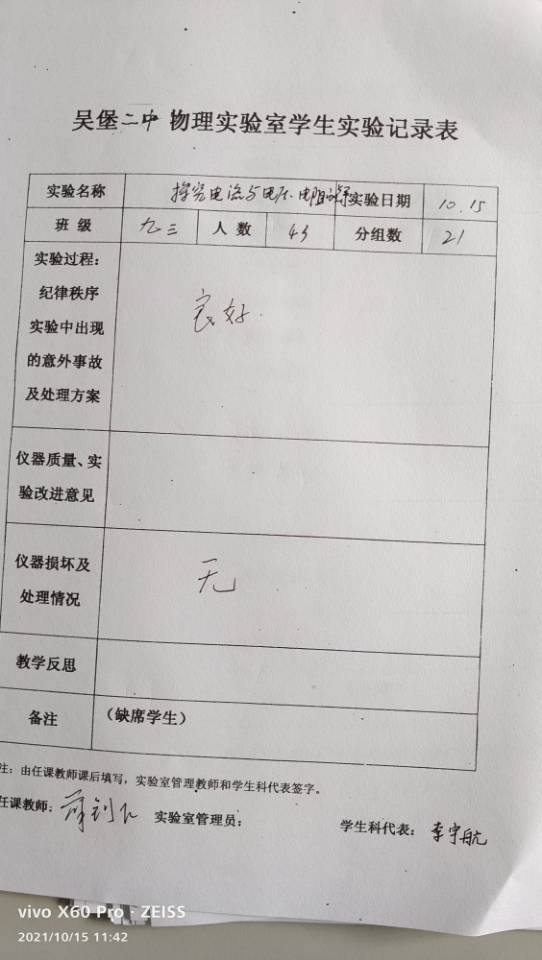 吴堡二中 物理实验室学生实验记录表
实验名称 探究电流与电压、电阻 实验日期 10.15
班 级 九三 人 数 43 分组数 21
实验过程:
纪律秩序
实验中出现
的意外事故
及处理方案
良好.
仪器质量、实
验改进意见
仪器损坏及
处理情况
无
教学反思
备注 (缺席学生)
注:由任课教师课后填写,实验室管理教师和学生科代表签字。
任课教师: 实验室管理员: 学生科代表: 李宇航
vivo X60 Pro · ZEISS
2021/10/15 11:42